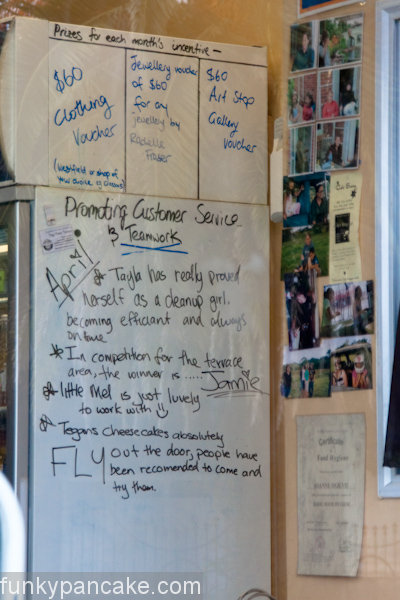 Prizes for each month's incentive -
$60
Clothing
Voucher
(Westfield or shop of
your choice eg Crooms)
Jewellery voucher
of $60
for any
jewellery by
Rachelle
Fraser
$60
Art Stop
Gallery
Voucher
Promoting Customer Service
& Teamwork
April
* Tayla has really proved
herself as a cleanup girl.
becoming efficient and always
on time
* In competition for the terrace
area, the winner is ..... Jamie
* little Mel is just luvely
to work with :)
* Tegans cheesecakes absolutely
FLY out the door, people have
been recomended to come and
try them.
Certificate
Food Hygiene
funkypancake.com